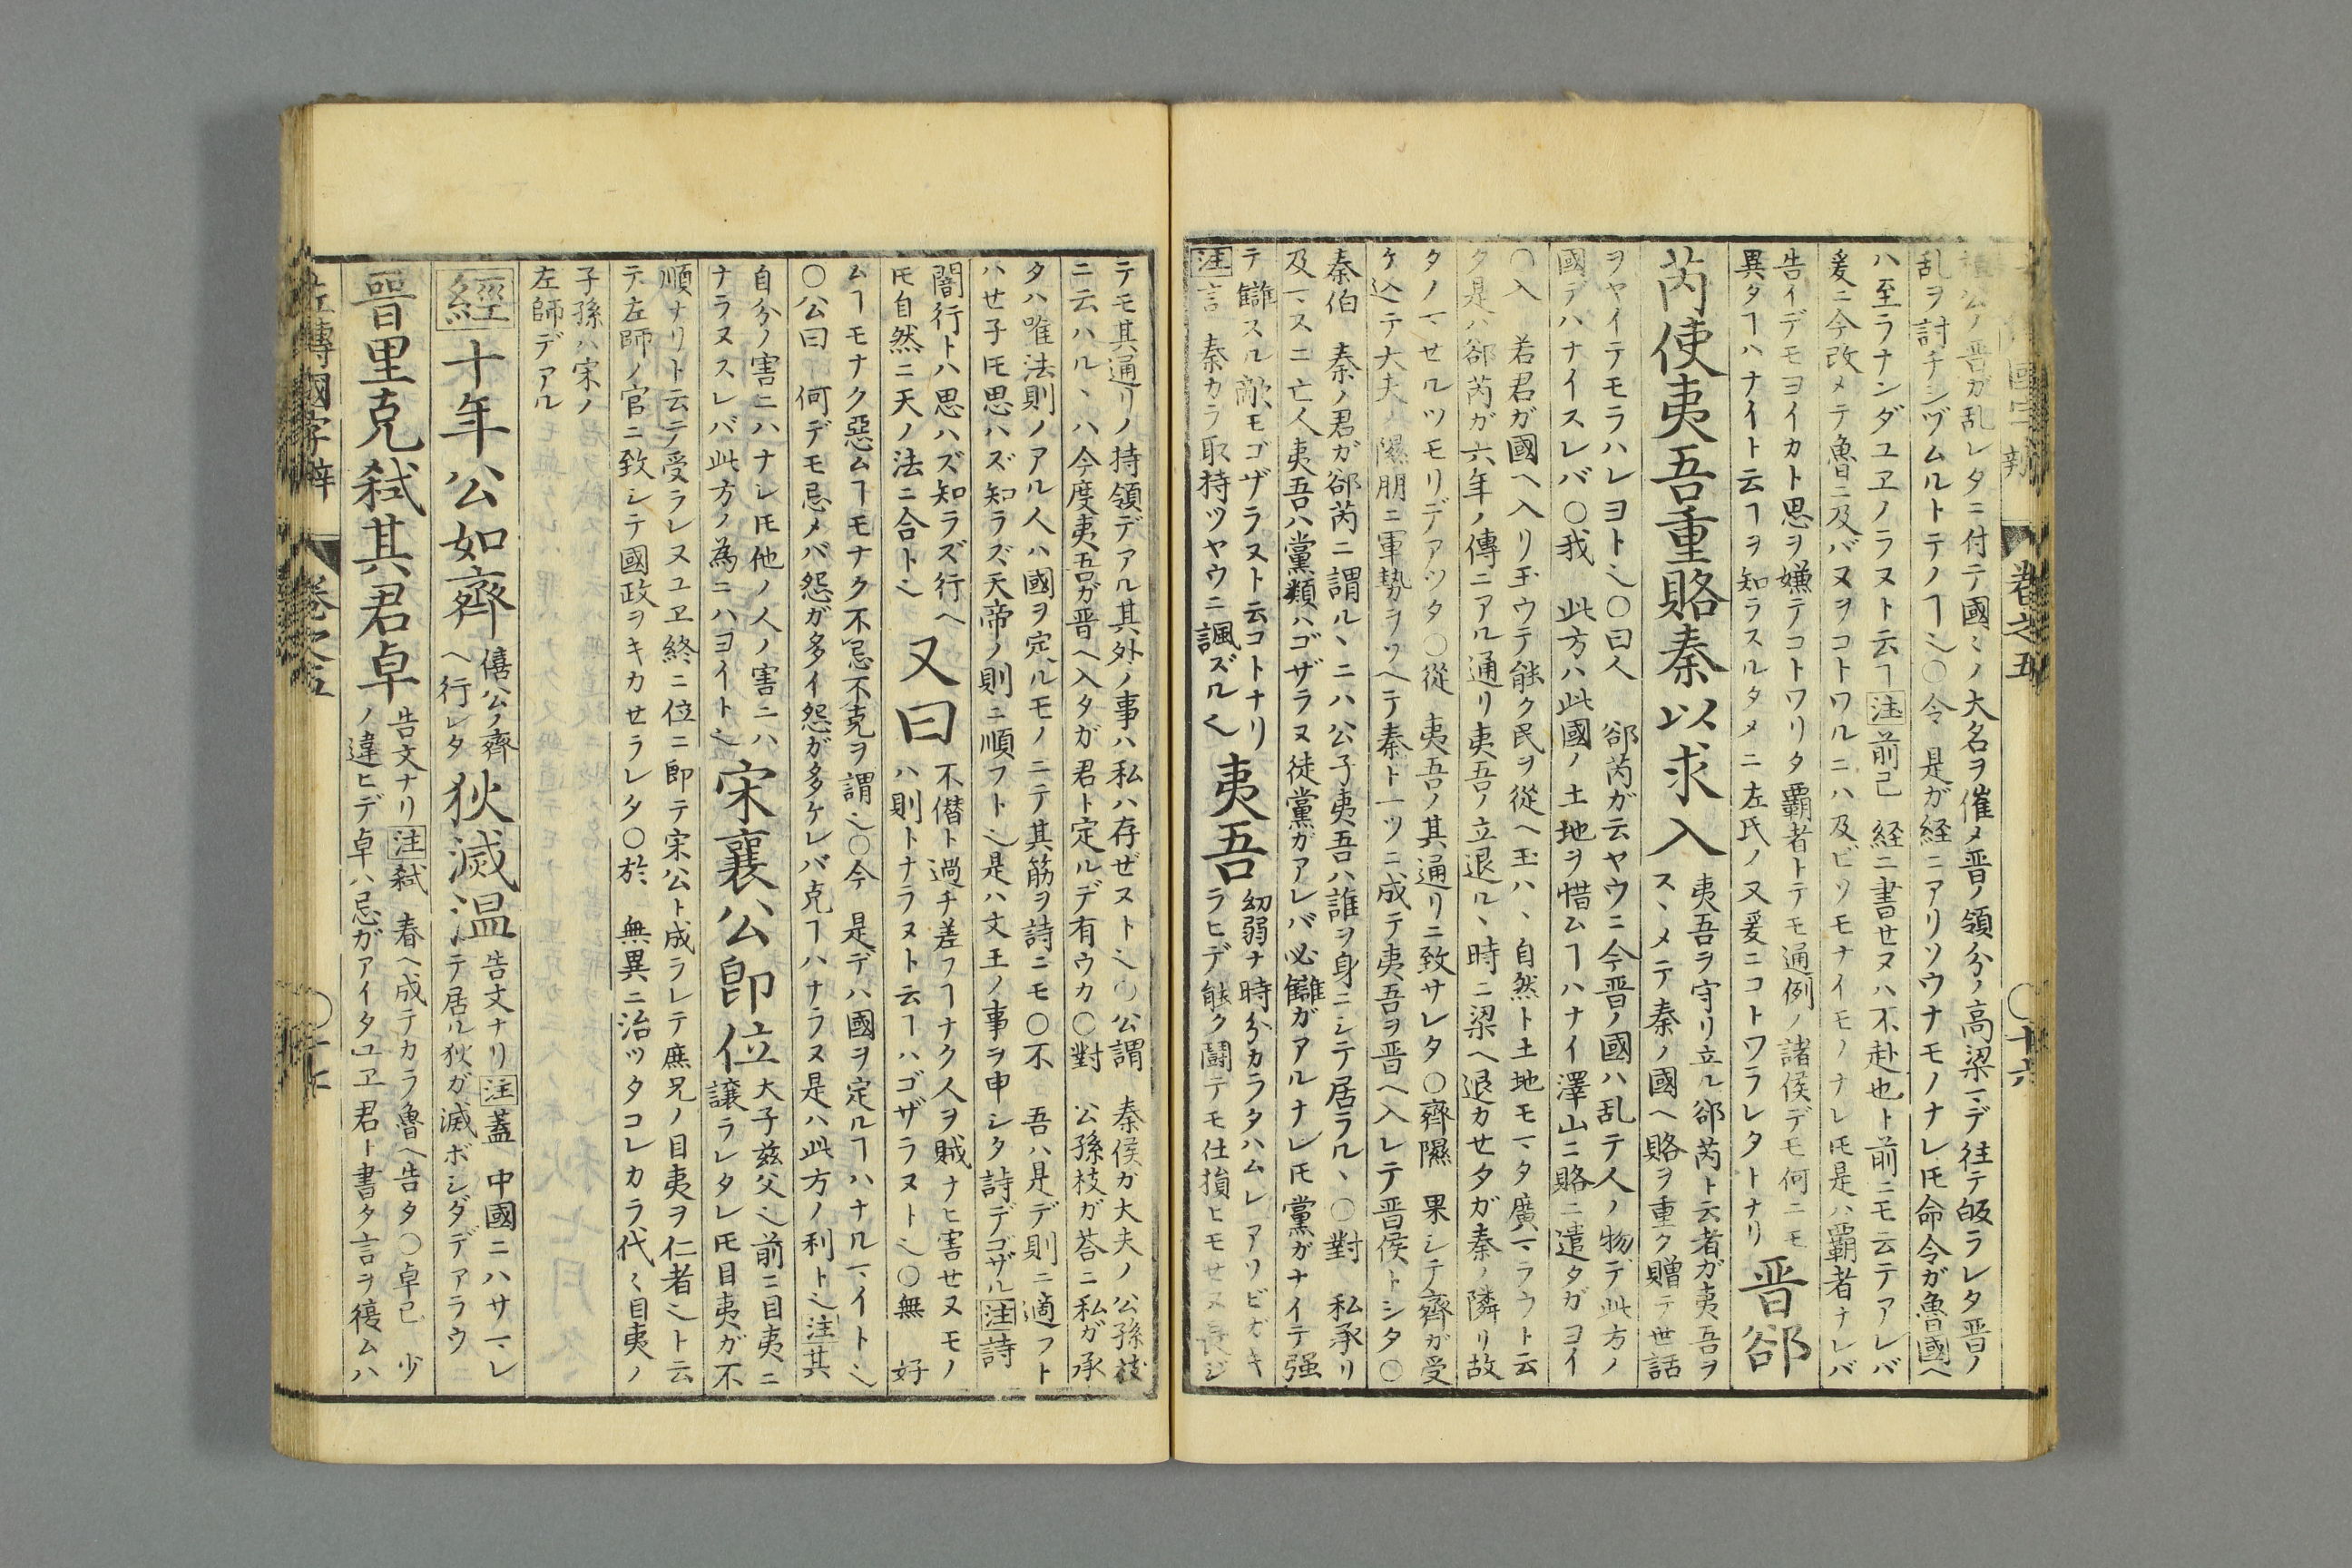 國字辯 卷之五 〇十六
桓公ノ晋ガ乱レタニ付テ國〻ノ大名ヲ催メ晋ノ領分ノ高梁マデ往テ皈ラレタ晋ノ
乱ヲ討チシヅムルトテノヿ〇令 是ガ経ニアリソウナモノナレ𪜈命令ガ魯國ヘ
ハ至ラナンダユヱノラヌト云ヿ注前已 経ニ書せヌハ不赴也ト前ニモ云テアレバ
爰ニ今改メテ魯ニ及バヌヲコトワルニハ及ビソモナイモノナレ𪜈是ハ覇者ナレバ
告イデモヨイカト思ヲ嫌テコトワリタ覇者トテモ通例ノ諸侯デモ何ニモ
異タヿハナイト云ヿヲ知ラスルタメニ左氏ノ又爰ニコトワラレタトナリ
晋郤
芮使夷吾重賂秦以求入
夷吾ヲ守リ立ル郤芮ト云者ガ夷吾ヲ
スヽメテ秦ノ國ヘ賂ヲ重ク贈テ世話
ヲヤイテモラハレヨト也〇曰人 郤芮ガ云ヤウニ今晋ノ國ハ乱テ人ノ物デ此方ノ
國デハナイスレバ〇我 此方ハ此國ノ土地ヲ惜ムヿハナイ澤山ニ賂ニ遣タガヨイ
〇入 若君ガ國ヘ入リ玉ウテ能ク民ヲ從ヘ玉ハヽ自然ト土地モマタ廣マラウト云
ク是ハ郤芮ガ六年ノ傳ニアル通リ夷吾ノ立退ルヽ時ニ梁ヘ退カせタガ秦ノ隣リ故
タノマせルツモリデアツタ〇從 夷吾ノ其通リニ致サレタ〇齊隰 果シテ齊ガ受
ケ込テ大夫ノ隰朋ニ軍勢ヲソヘテ秦ト一ツニ成テ夷吾ヲ晋ヘ入レテ晋侯トシタ〇
秦伯 秦ノ君ガ郤芮ニ謂ルヽニハ公子夷吾ハ誰ヲ身ニシテ居ラルヽ〇對 私承リ
及マスニ亡人夷吾ハ黨類ハゴザラヌ徒黨ガアレバ必讎ガアルナレ𪜈黨ガナイテ强
テ讎スル敵モゴザラヌト云コトナリ
注言 秦カラ取持ツヤウニ諷ズル也
夷吾
幼弱ナ時分カラタハムレアソビガキ
ラヒデ能ク鬪テモ仕損ヒモせヌ長ジ
テモ其通リノ持領デアル其外ノ事ハ私ハ存ぜヌト也〇公謂 秦侯ガ大夫ノ公孫枝
ニ云ハルヽハ今度夷吾ガ晋ヘ入タガ君ト定ルデ有ウカ〇對 公孫枝ガ荅ニ私ガ承
タハ唯法則ノアル人ハ國ヲ定ルモノニテ其筋ヲ詩ニモ〇不 吾ハ是デ則ニ適フト
ハせ子𪜈思ハズ知ラズ天帝ノ則ニ順フト也是ハ文王ノ事ヲ申シタ詩デゴザル注詩
闇行トハ思ハズ知ラズ行ヘ
𪜈自然ニ天ノ法ニ合ト也
又曰
不僣ト過チ差フヿナク人ヲ賊ナヒ害せヌモノ
ハ則トナラヌト云ヿハゴザラヌト也〇無 好
ムヿモナク惡ムヿモナク不忌不克ヲ謂也〇今 是デハ國ヲ定ルヿハナルマイト也
〇公曰 何デモ忌メバ怨ガ多イ怨ガ多ケレバ克ヿハナラヌ是ハ此方ノ利ト也注其
自分ノ害ニハナシ𪜈他ノ人ノ害ニハ
ナラヌスレバ此方ノ為ニハヨイト也
宋襄公即位
大子兹父也前ニ目夷ニ
譲ラレタレ𪜈目夷ガ不
順ナリト云テ受ラレヌユヱ終ニ位ニ即テ宋公ト成ラレテ庶兄ノ目夷ヲ仁者也ト云
テ左師ノ官ニ致シテ國政ヲキカせラレタ〇於 無異ニ治ツタコレカラ代〻目夷ノ
子孫ハ宋ノ
左師デアル
經 十年公如齊
僖公ノ齊
ヘ行レタ
狄滅温
告文ナリ注蓋 中國ニハサマレ
テ居ル狄ガ滅ボシタデアラウ
晉里克弑其君卓
告文ナリ注弑 春ヘ成テカラ魯ヘ告タ〇卓已 少
ノ違ヒデ卓ハ忌ガアイタユヱ君ト書タ言ヲ䄠ムハ
左傳國字辯 卷之五 〇十七